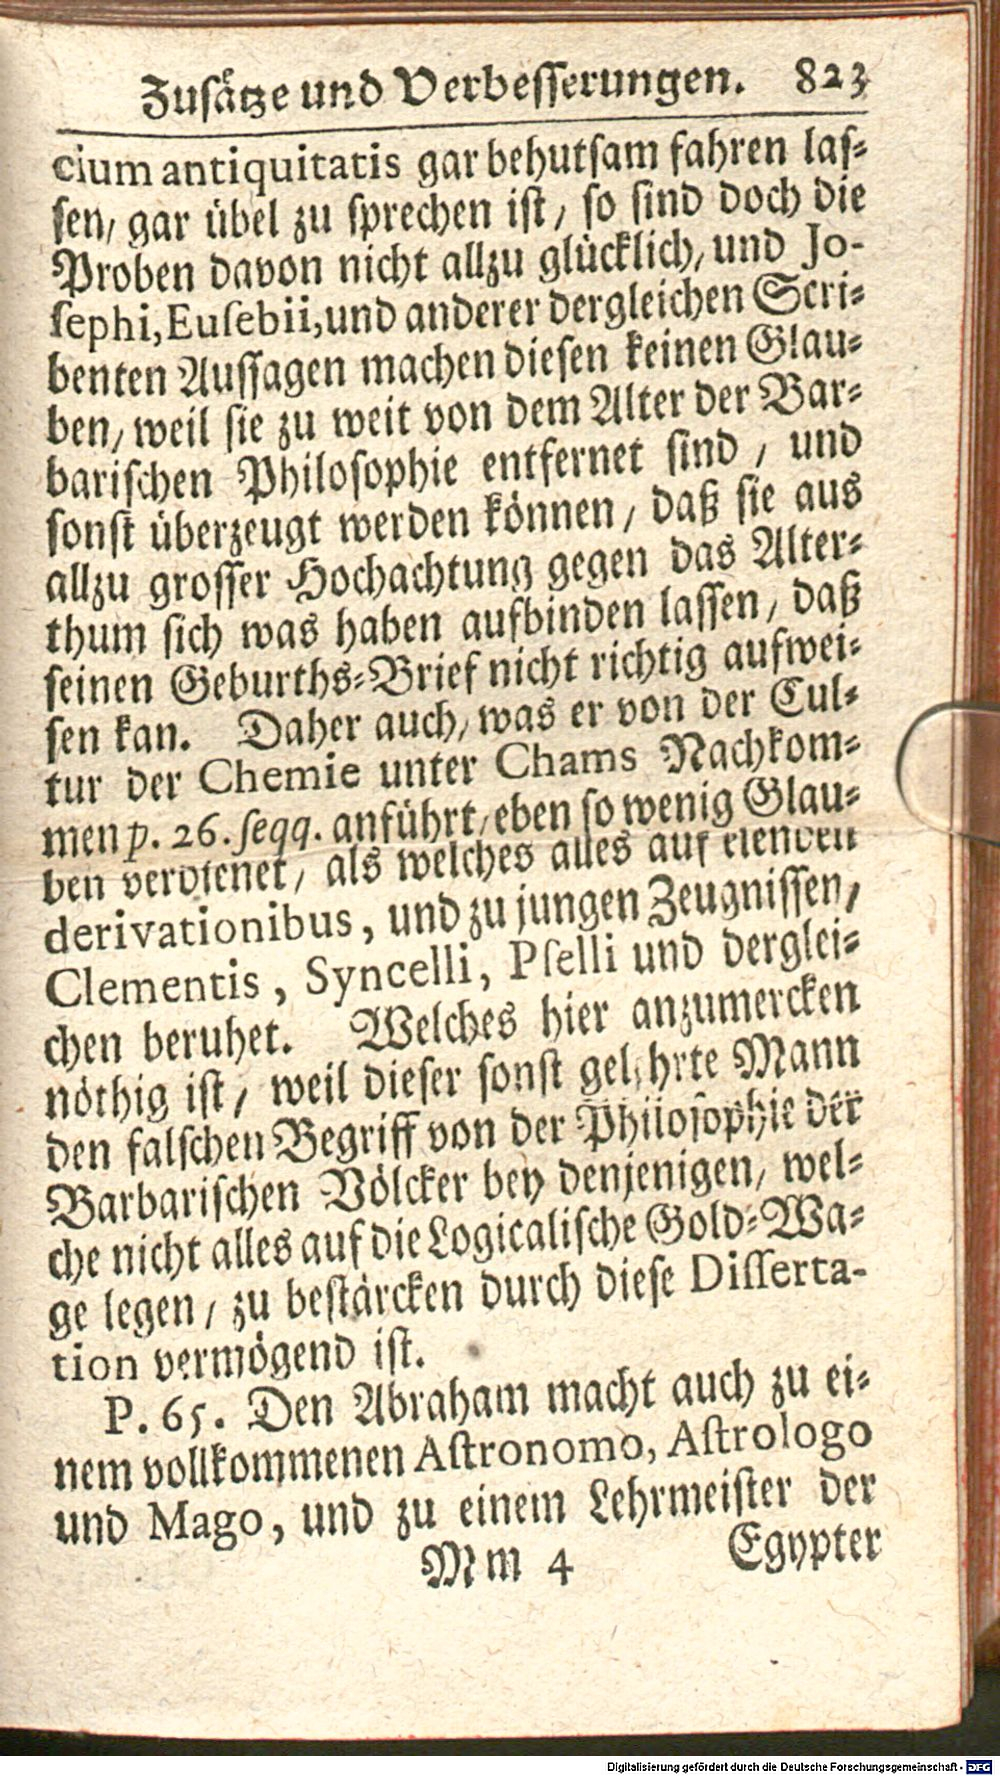 Zusätze und Verbesserungen. 823
cium antiquitatis gar behutsam fahren las-
sen, gar übel zu sprechen ist, so sind doch die
Proben davon nicht allzu glücklich, und Jo-
sephi, Eusebii, und anderer dergleichen Scri-
benten Aussagen machen diesen keinen Glau-
ben, weil sie zu weit von dem Alter der Bar-
barischen Philosophie entfernet sind, und
sonst überzeugt werden können, daß sie aus
allzu grosser Hochachtung gegen das Alter-
thum sich was haben aufbinden lassen, daß
seinen Geburths-Brief nicht richtig aufwei-
sen kan. Daher auch, was er von der Cul-
tur der Chemie unter Chams Nachkom-
men p. 26. seqq. anführt, eben so wenig Glau-
ben verdienet, als welches alles auf elenden
derivationibus, und zu jungen Zeugnissen,
Clementis, Syncelli, Pselli und derglei-
chen beruhet. Welches hier anzumercken
nöthig ist, weil dieser sonst gelehrte Mann
den falschen Begriff von der Philosophie der
Barbarischen Völcker bey denjenigen, wel-
che nicht alles auf die Logicalische Gold-Wa-
ge legen, zu bestärcken durch diese Disserta-
tion vermögend ist.
P. 65. Den Abraham macht auch zu ei-
nem vollkommenen Astronomo, Astrologo
und Mago, und zu einem Lehrmeister der
Mm 4 Egypter
Digitalisierung gefördert durch die Deutsche Forschungsgemeinschaft - DFG